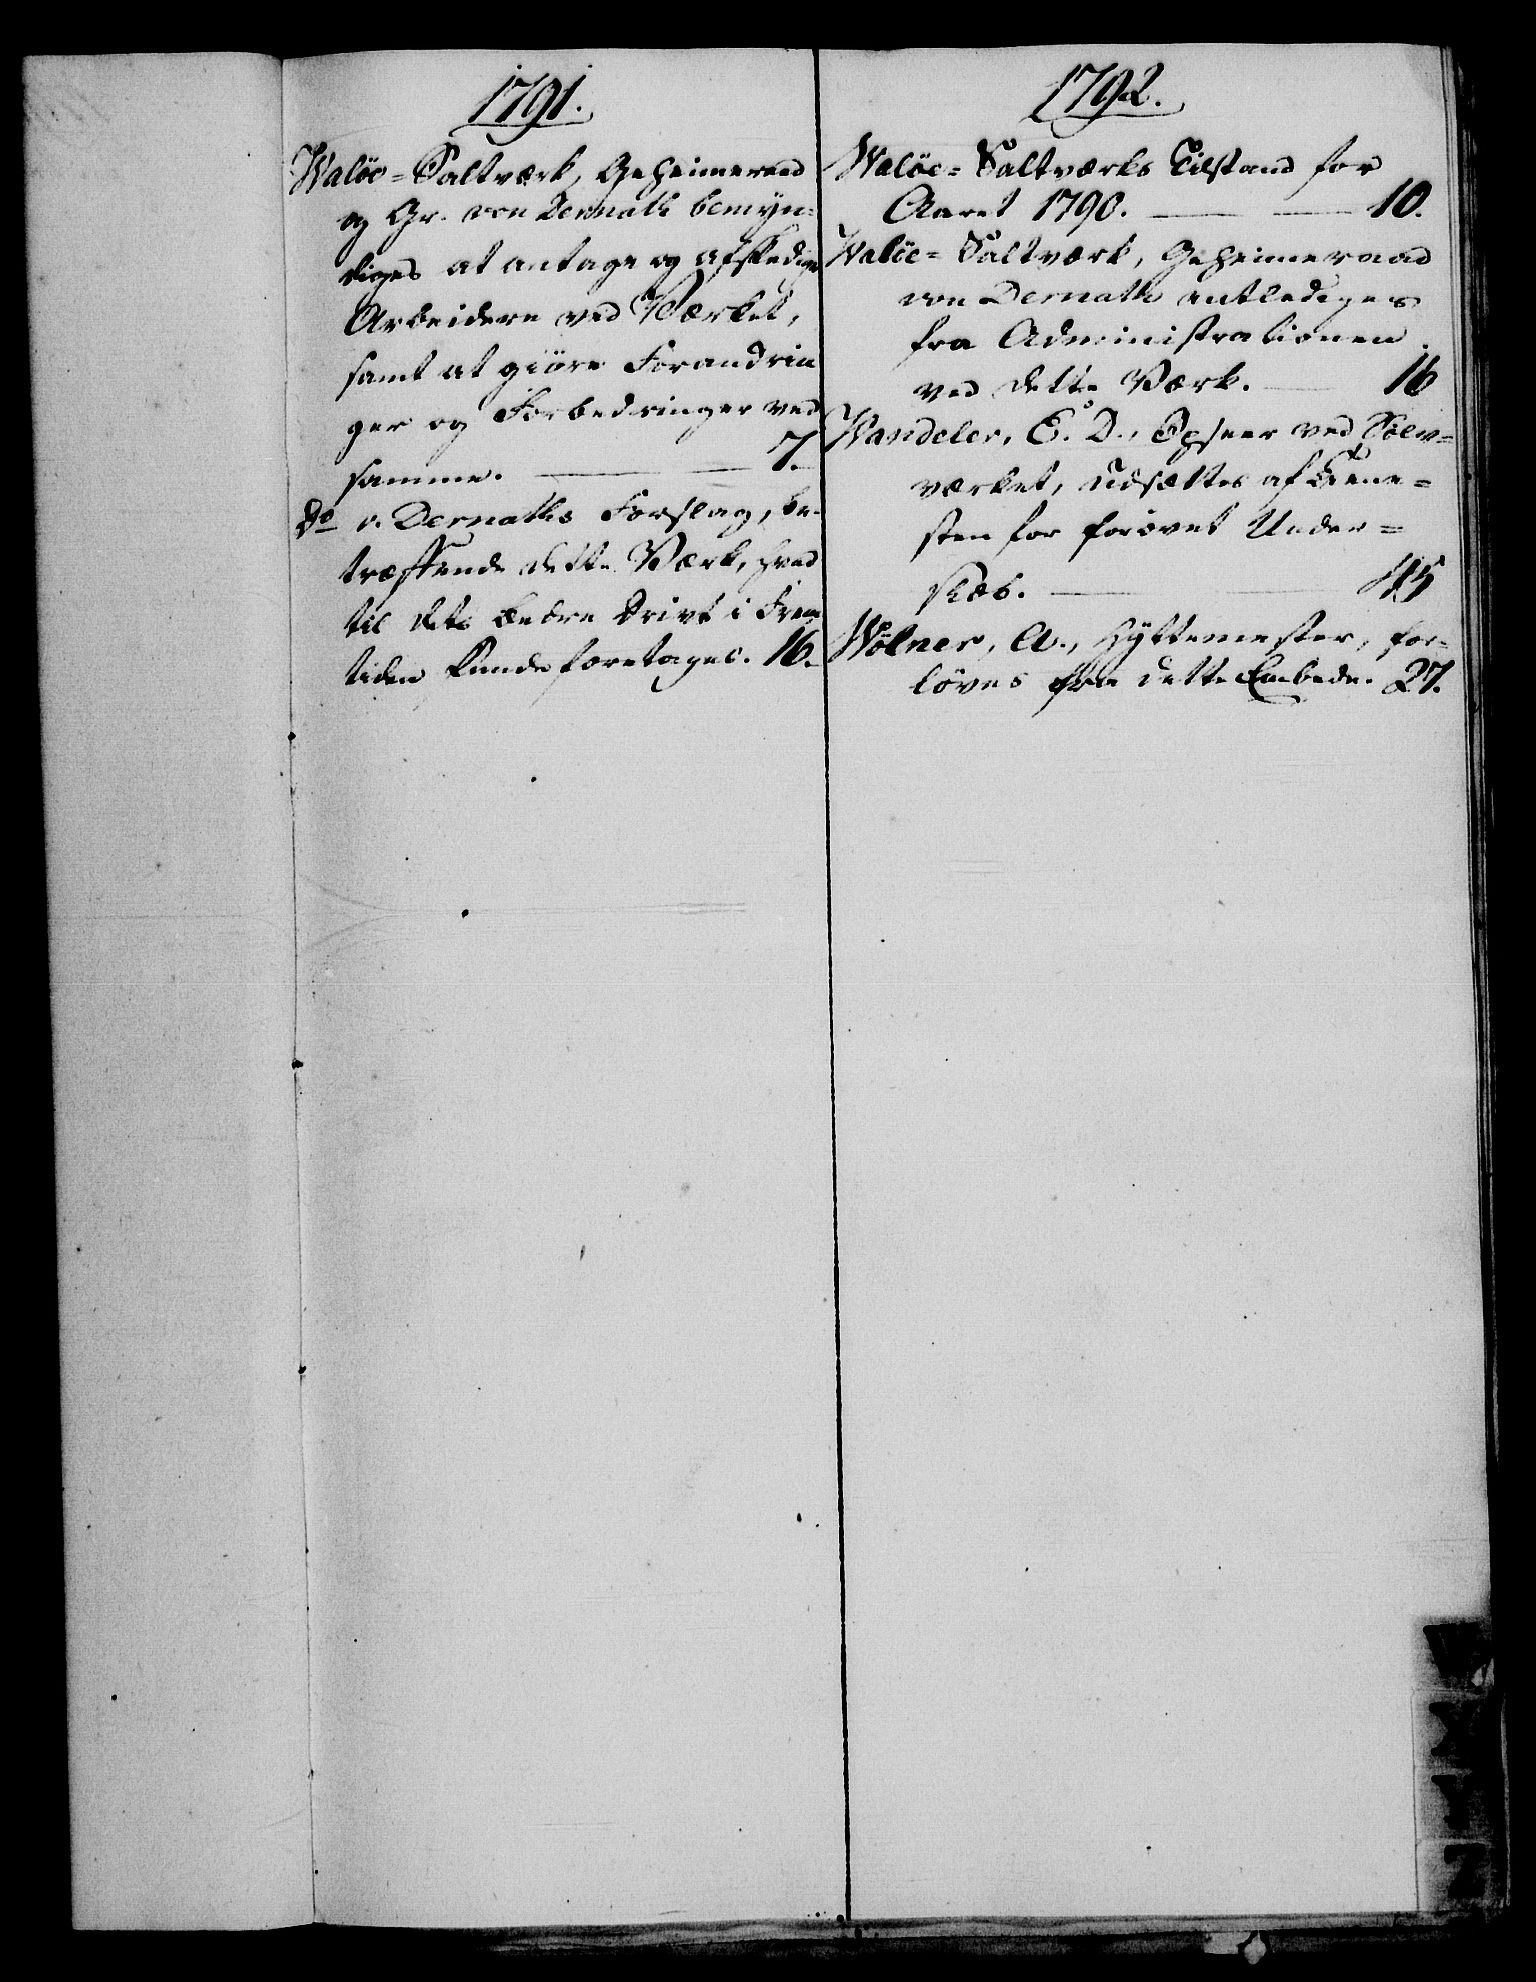 1791.
Waløe-Saltværk, Geheimeraad
og Gr. von Dernath bemyn-
diges at antage og afskedige
Arbeidere ved Værket,
samt at giøre Forandrin
ger og Forbedringer ved
samme. 7.
Do v. Dernaths Forslag, be-
træffende dette Værk, hvad
til dets bedre Drivt i Frem
tiden kunde foretages. 16.
1792.
Waløe-Saltværks Tilstand for
Aaret 1790. 10.
Waløe-Saltværk, Geheimeraad
von Dernath entlediges
fra Administrationen
ved dette Værk. 16
Wandeler, E. D., Opseer ved Sølv-
værket, udsættes af Tiene-
sten for forøvet Under-
slæb. 45
Wølner, A., Hyttemester, for-
løves fra dette Embede. 27.
W
X
Y
Z